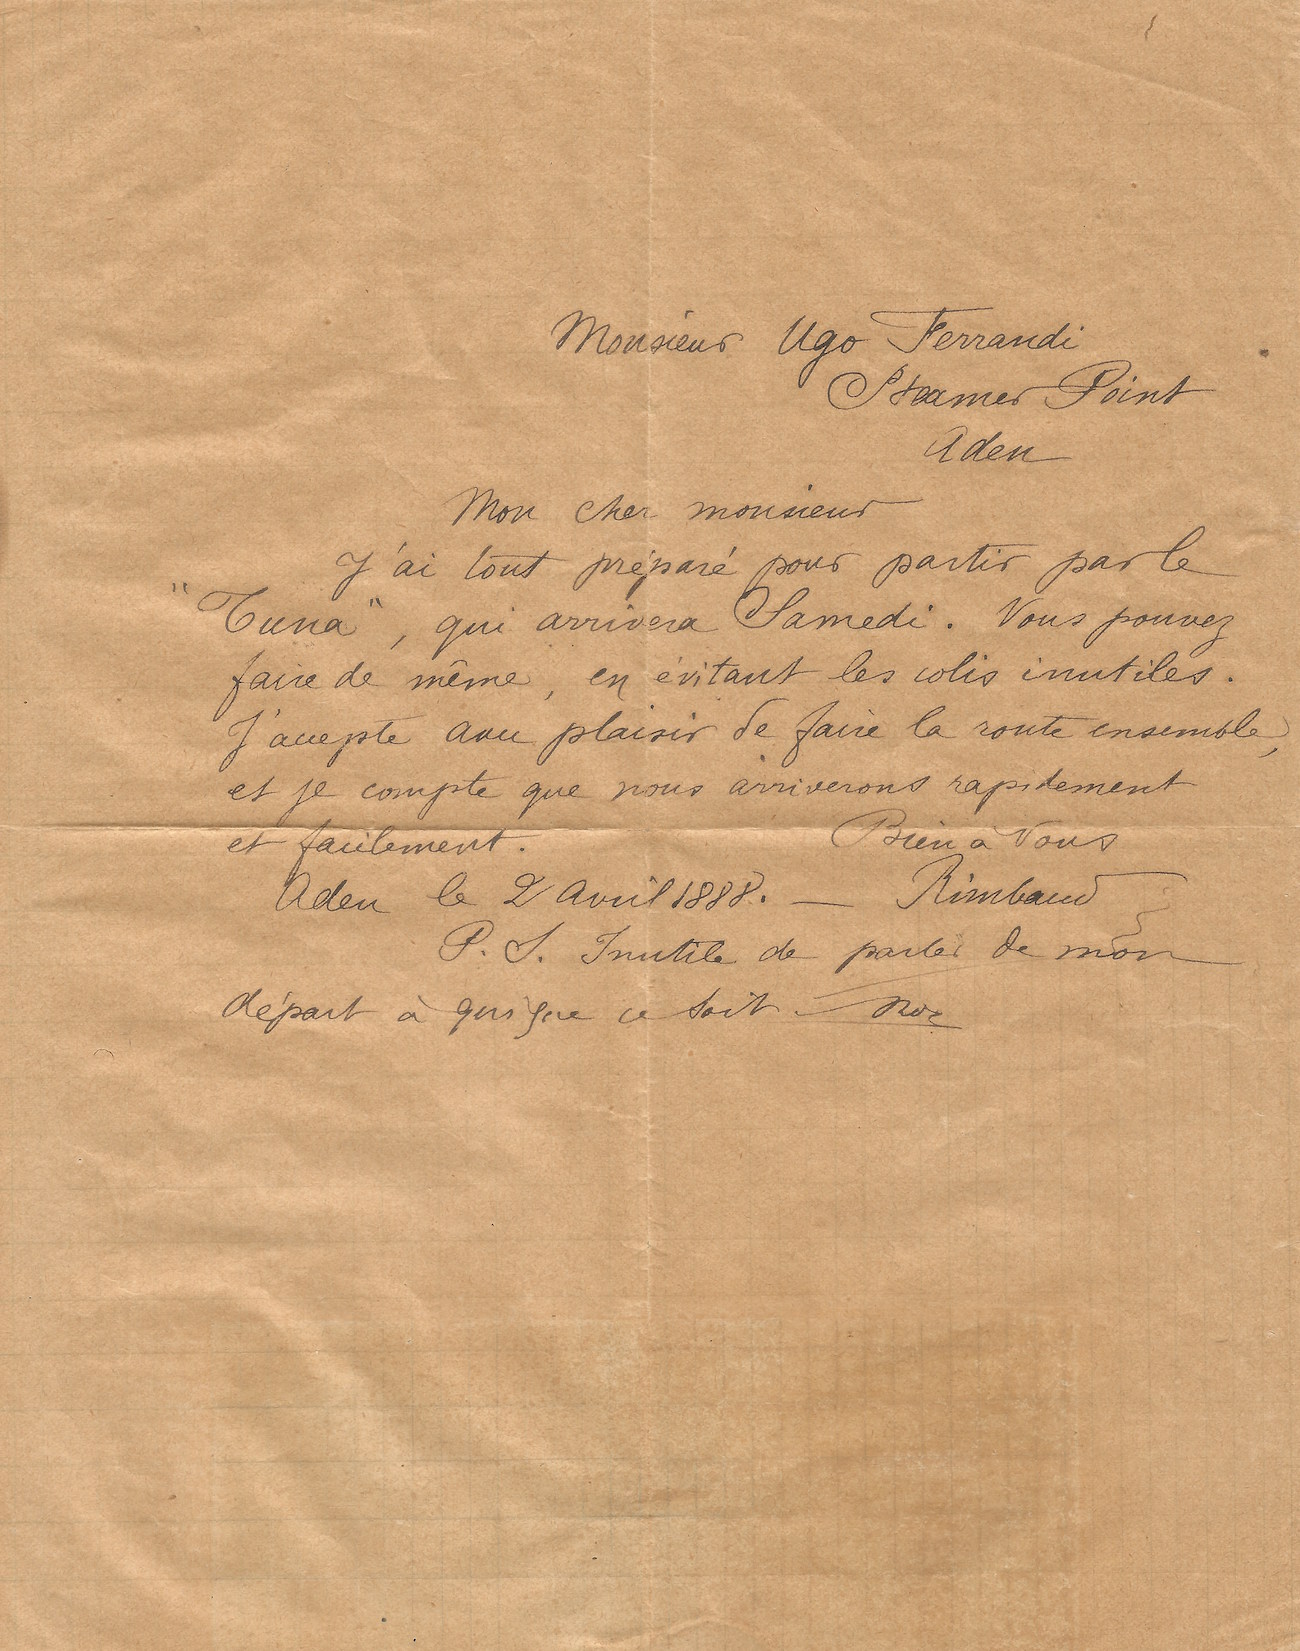 Monsieur Ugo Ferrandi
Steamer Point
Aden
Mon cher monsieur
J'ai tout préparé pour partir par le
"Tuna", qui arrivera Samedi. Vous pouvez
faire de même, en évitant les colis inutiles.
J'accepte avec plaisir de faire la route ensemble,
et je compte que nous arriverons rapidement
et facilement. Bien à Vous
Aden le 2 Avril 1888. — Rimbaud
P. S. Inutile de parler de mon
départ à qui que ce soit